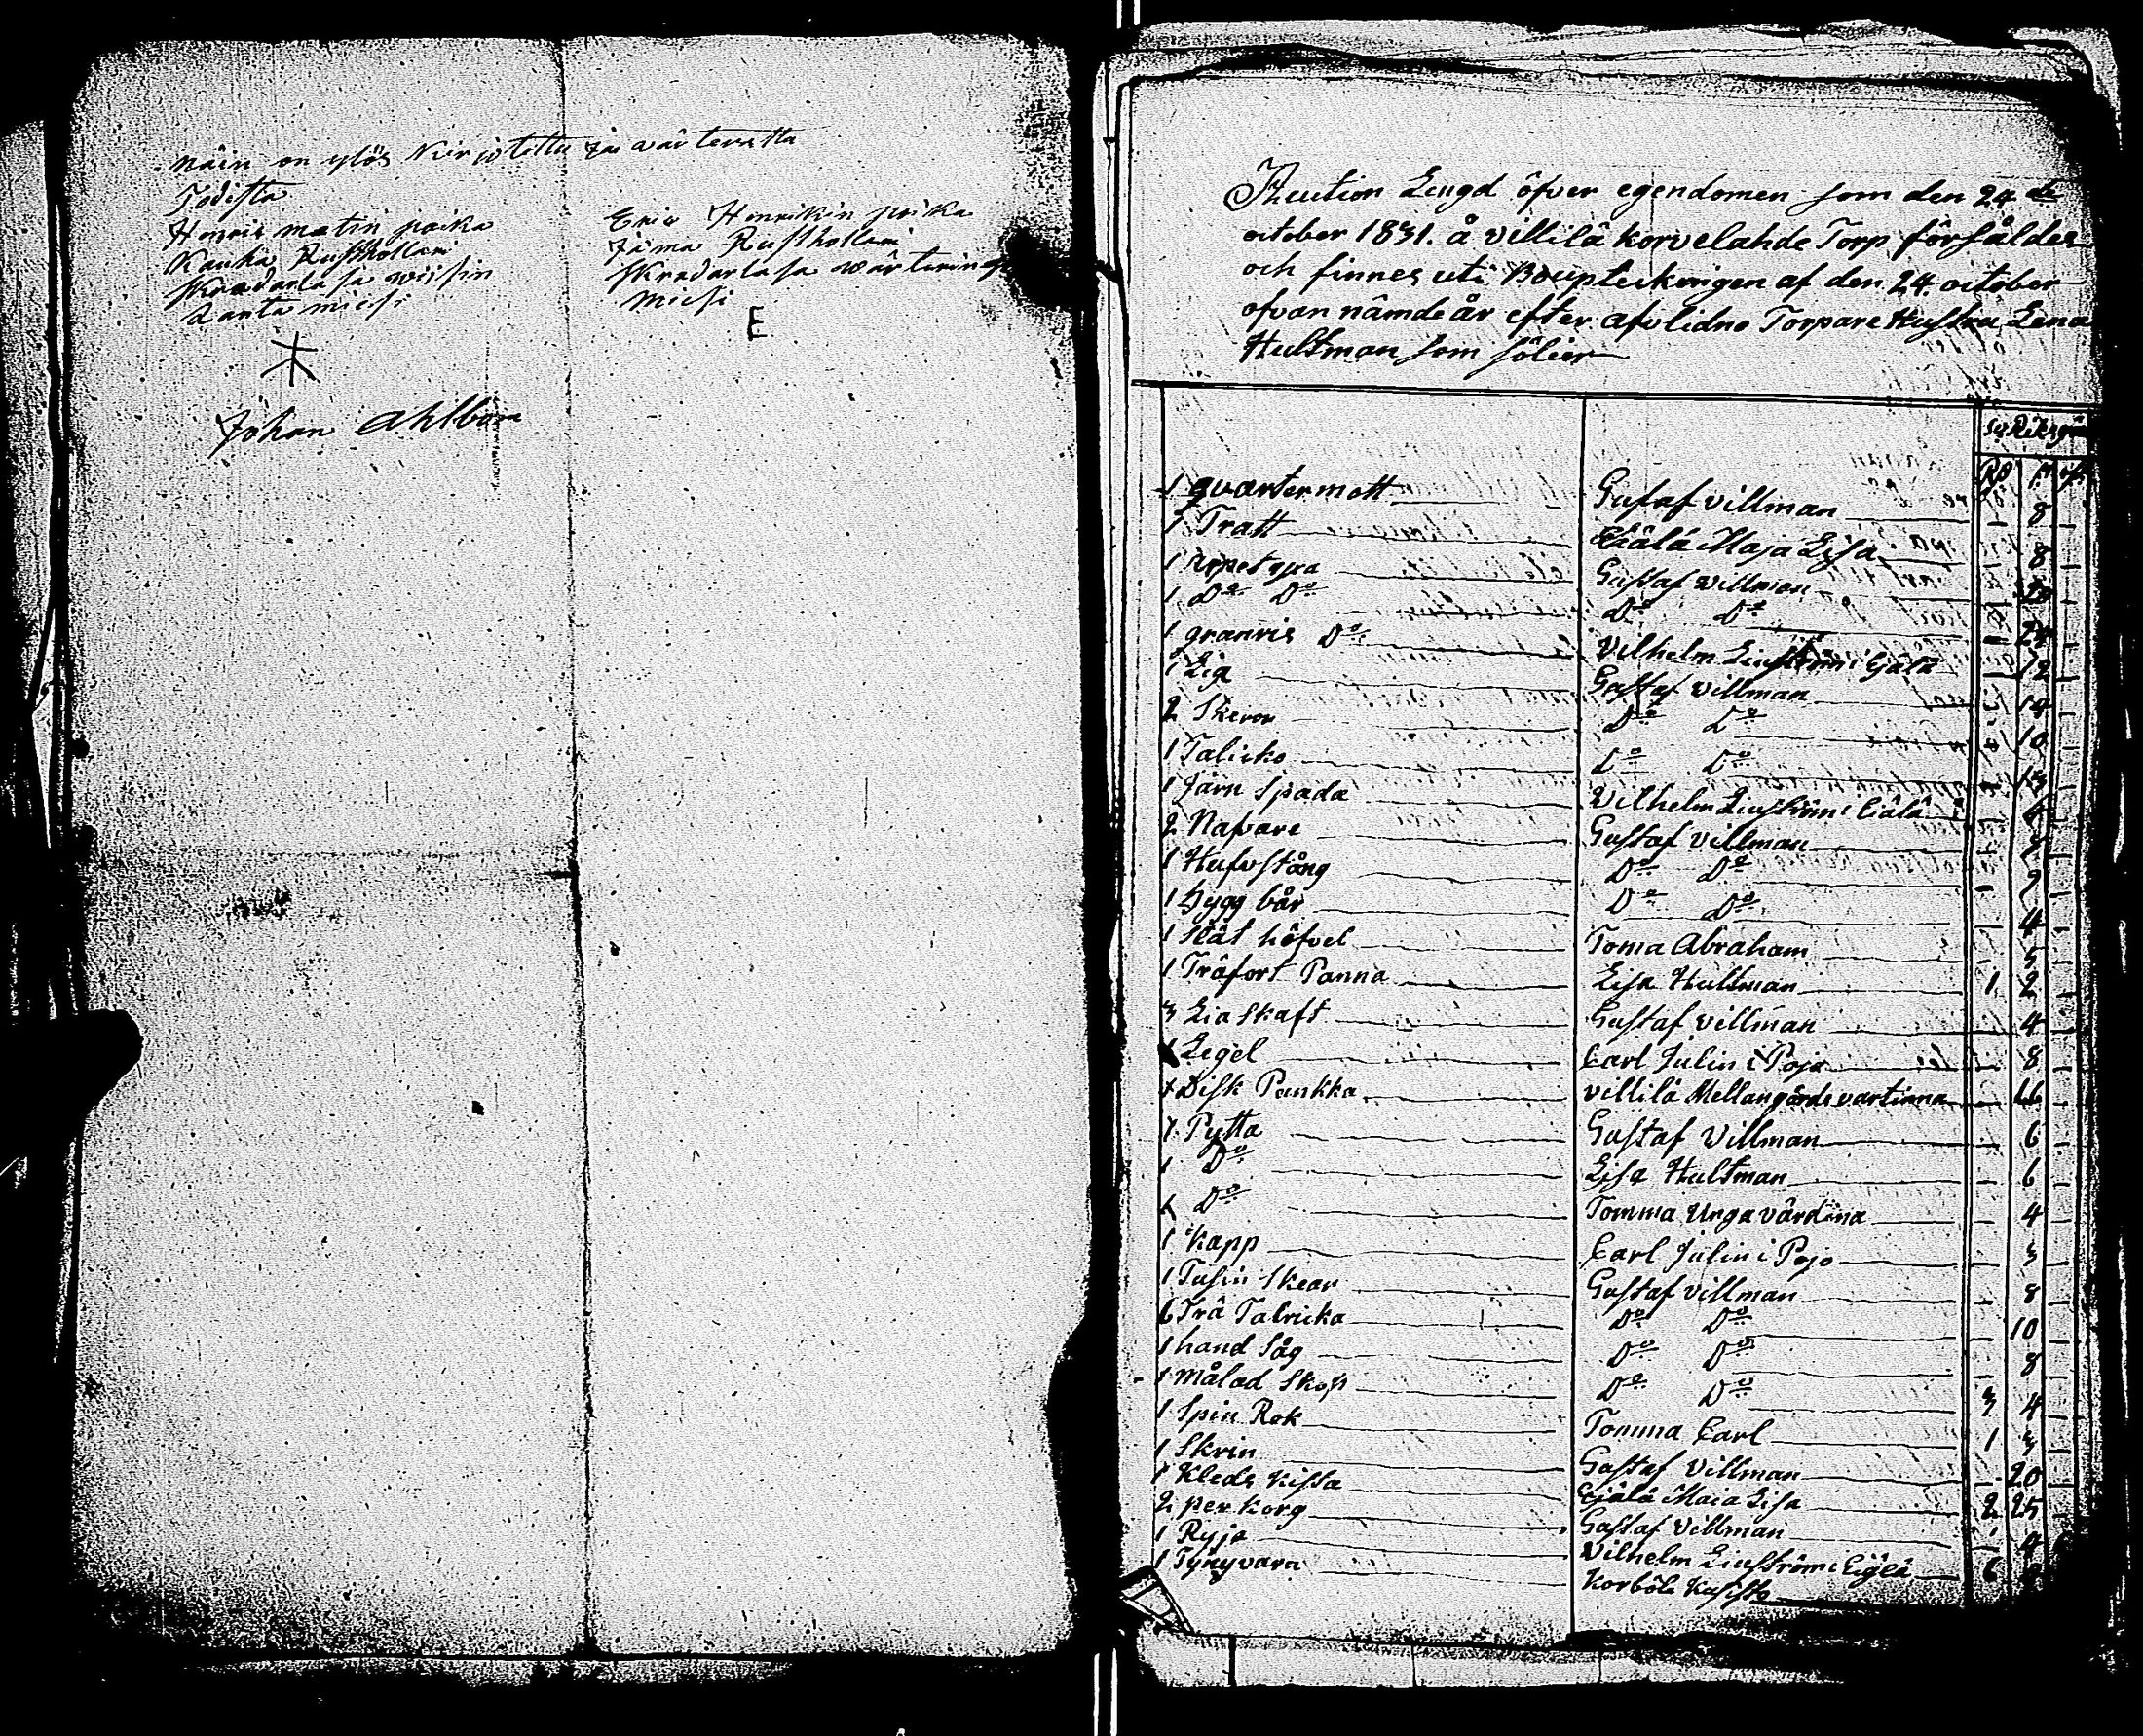 näin on ylös Kirjotettu ja wärteratta
Todista
Henric matin poika
Kauha Rusthollari
Kradarlasa wissin
Lanta miesi
Eric Henrikin poika
Jäma Rusthollari
Kradarlasa wärtering
miesi
E
Johan Ahlbom
Auction Lengd öfver egendomen som den 24 de
october 1831. å villilä korvelahde Torp försåldes
och finnes uti Boupteckningen af den 24. october
ofvan nämde år efter aflidne Torpare Hustru Lena
Hultman som föler
1 quartermatt Gustaf villman 8
1 Tratt Ejälä Maja Lisa 8
1 Gustaf villman
1 Do Do Do Do
1 granris Do Vilhelm i 12
1 Lia Gustaf villman 14
2 Skeror Do Do 10
1 Talicko Do Do 13
1 Järn Spada Vilhelm
2 Nafvare Gustaf villman
1 Hufvstång Do Do
1 hygg bår Do Do 4
1 slät höfvel Toma Abraham 5
1 Panna Lisa Hultman 1 2
3 Lia skaft Gustaf villman 4
1 Legel Carl Julin i Pojo 8
1 Disk Pankka villilä Mellangårds vartinna
1 Pytta Gustaf Villman 6
1 Do Lisa Hultman 6
1 Do Tomma Unga värdina 4
1 Kapp Carl Julin i Pojo 3
1 Tusin Skear Gustaf villman 8
6 Trä Talricka Do Do 10
1 hand Såg Do Do 8
1 målad Skop Do Do 3 4
1 Spin Rok Tomma Carl 1
1 Skrin Gustaf Villman 20
1 Kleds Kissa Ejälä Maia Lisa 2 25
2 per korg Gustaf Villman 4
1 Ryja Vilhelm 6
1 Tynyvara